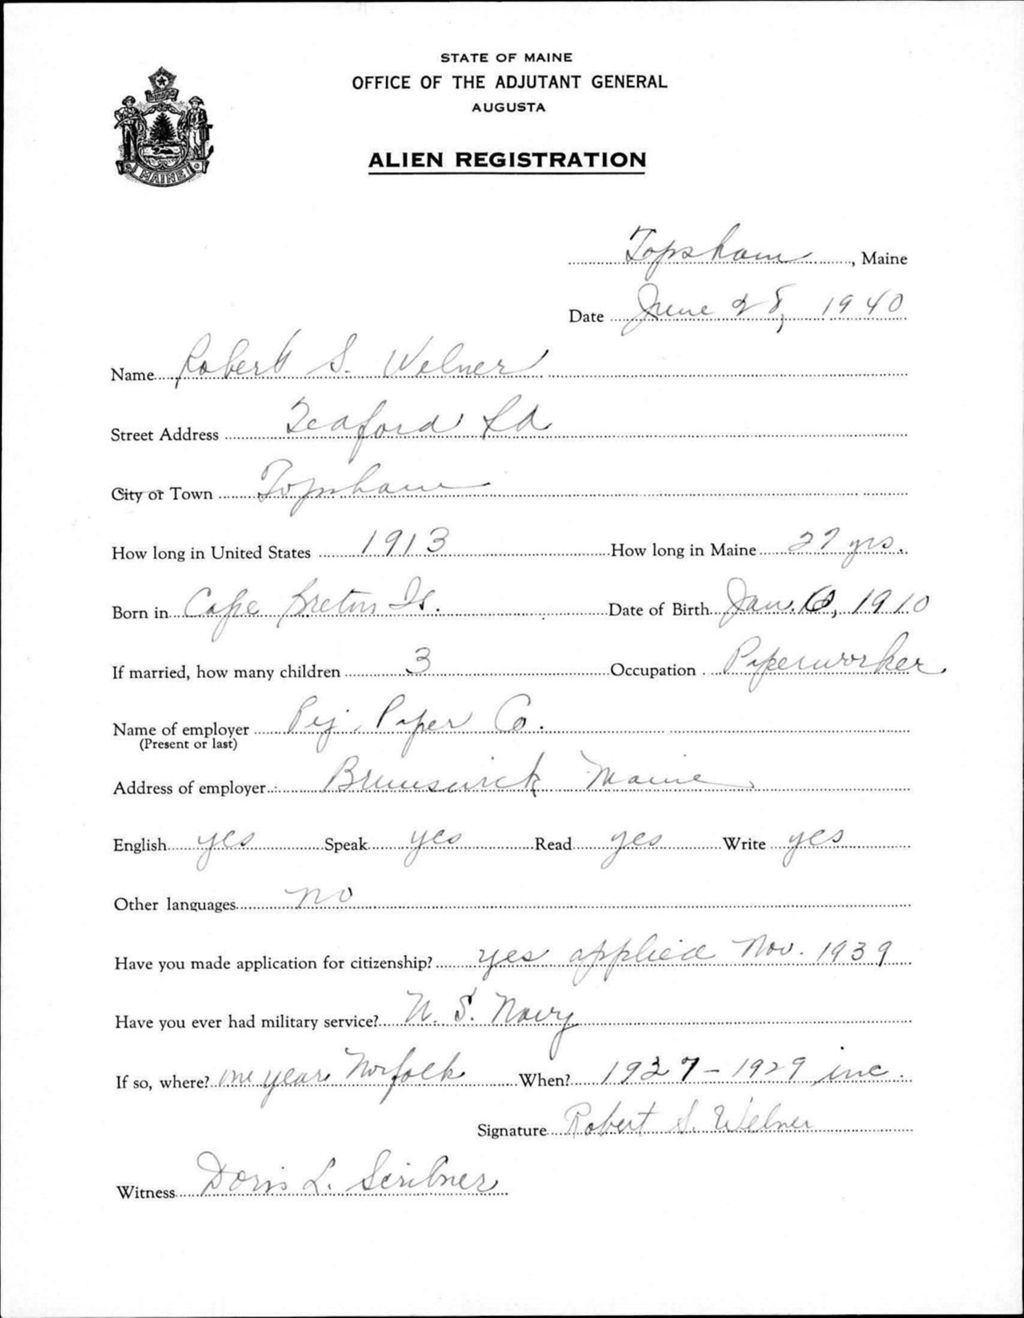 STATE OF MAINE
OFFICE OF THE ADJUTANT GENERAL
AUGUSTA
ALIEN REGISTRATION
MAINE
Topsham, Maine
Date June 28, 1940
Name Robert S. Welner
Street Address Rd
City or Town Topsham
How long in United States 1913 How long in Maine 27 yrs.
Born in Cape Breton Is. Date of Birth Jan. 6, 1910
If married, how many children 3 Occupation Paperworker
Name of employer Pej. Paper Co.
(Present or last)
Address of employer Brunswick Maine
English yes Speak yes Read yes Write yes
Other languages no
Have you made application for citizenship? yes applied Nov. 1939
Have you ever had military service? U. S. Navy
If so, where? one year Norfolk When? 1927 - 1929 inc.
Signature Robert S. Welner
Witness Doris L. Scribner